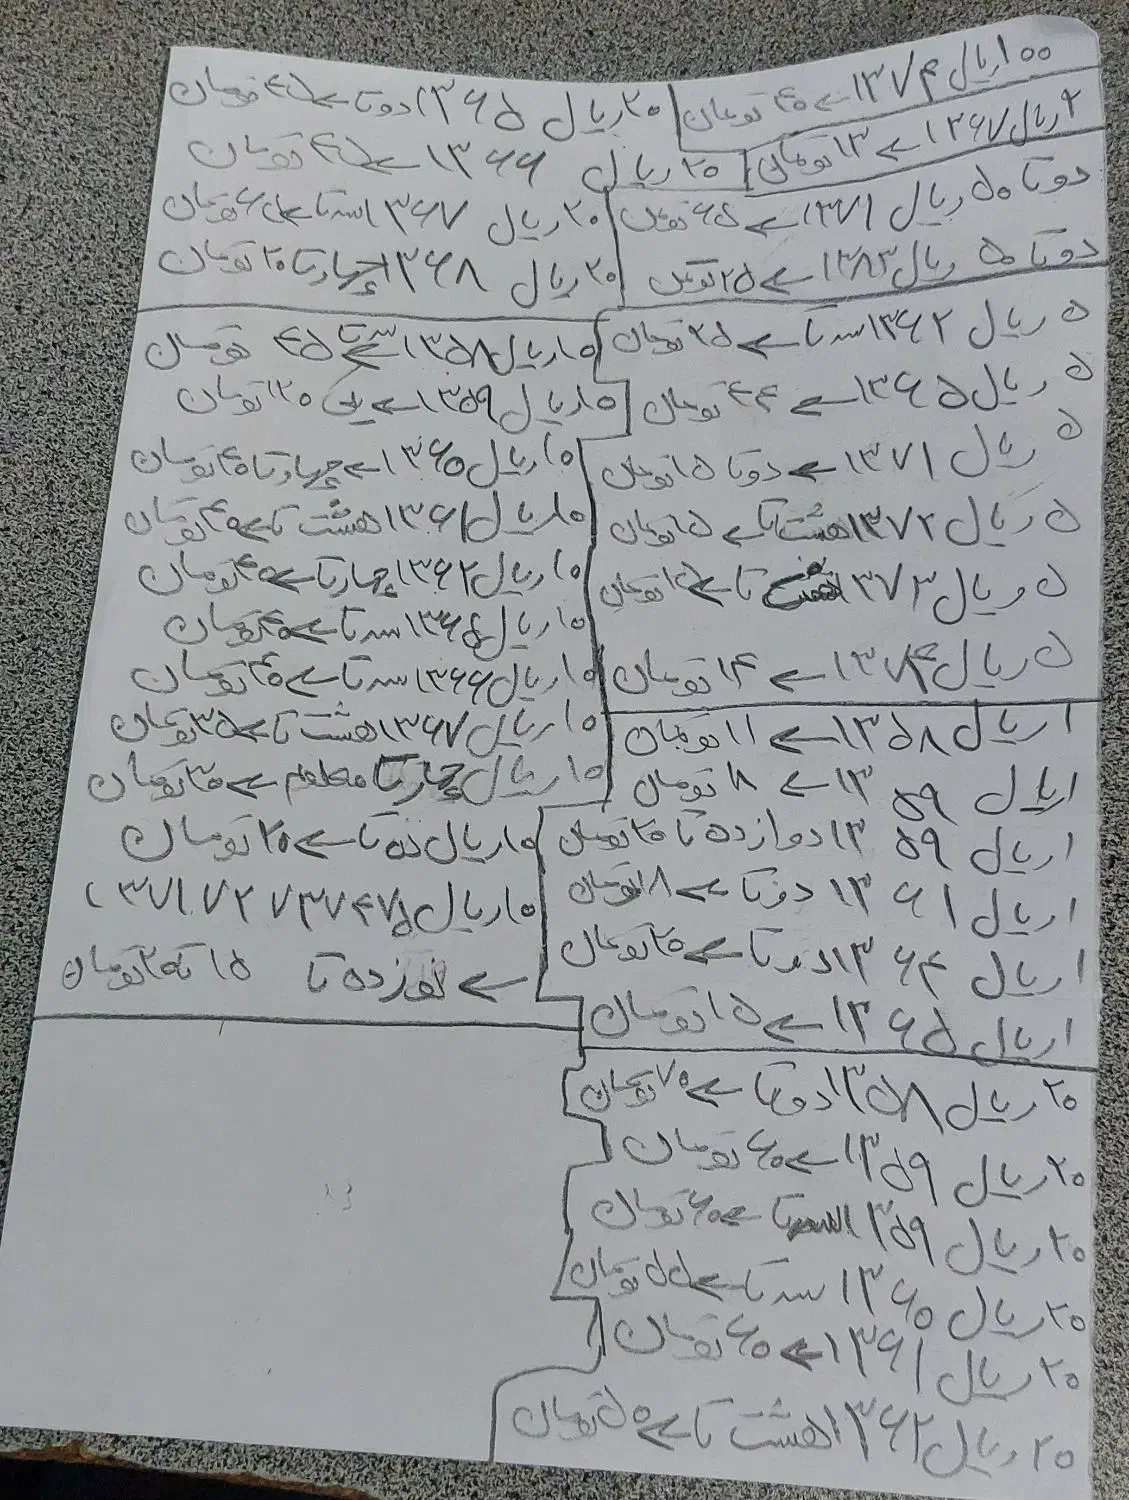 ۱۰۰ ریال ۱۳۷۴ ← ۴۰ تومان
۲ ریال ۱۳۶۷ ← ۱۳ تومان
دو تا ۵۰ ریال ۱۳۷۱ ← ۶۵ تومان
دو تا ۵۰ ریال ۱۳۸۳ ← ۲۵ تومان
۵ ریال ۱۳۶۲ سه تا ← ۲۵ تومان
۵ ریال ۱۳۶۵ ← ۴۴ تومان
۵ ریال ۱۳۷۱ ← دو تا ۱۵ تومان
۵ ریال ۱۳۷۲ هشت تا ← ۱۵ تومان
۵ ریال ۱۳۷۳ تا ← تومان
۵ ریال ۱۳۷۴ ← ۱۴ تومان
۱ ریال ۱۳۵۸ ← ۱۱ تومان
۱ ریال ۱۳۵۹ ← ۱۸ تومان
۱ ریال ۱۳۵۹ دوازده تا ۲۰ تومان
۱ ریال ۱۳۶۱ دو تا ← ۱۸ تومان
۱ ریال ۱۳۶۴ دو تا ← ۲۰ تومان
۱ ریال ۱۳۶۵ ← ۱۵ تومان
۲۰ ریال ۱۳۵۸ دو تا ← ۷۰ تومان
۲۰ ریال ۱۳۵۹ ← ۶۰ تومان
۲۰ ریال ۱۳۵۹ تا ← ۶۰ تومان
۲۰ ریال ۱۳۶۰ سه تا ← ۵۵ تومان
۲۰ ریال ۱۳۶۱ ← ۶۰ تومان
۲۰ ریال ۱۳۶۲ هشت تا ← ۵۰ تومان
۲۰ ریال ۱۳۶۵ دو تا ← ۴۵ تومان
۲۰ ریال ۱۳۶۶ ← ۴۵ تومان
۲۰ ریال ۱۳۶۷ سه تا ← تومان
۲۰ ریال ۱۳۶۸ چهار تا ۲۰ تومان
۱۰ ریال ۱۳۵۸ ← ۴۵ تومان
۱۰ ریال ۱۳۵۹ ← یکی ۱۲۰ تومان
۱۰ ریال ۱۳۶۰ ← چهار تا ۴۰ تومان
۱۰ ریال ۱۳۶۱ هشت تا ← ۴۰ تومان
۱۰ ریال ۱۳۶۲ چهار تا ← ۴۰ تومان
۱۰ ریال ۱۳۶۵ سه تا ← ۴۰ تومان
۱۰ ریال ۱۳۶۶ سه تا ← ۴۰ تومان
۱۰ ریال ۱۳۶۷ هشت تا ← ۳۵ تومان
۱۰ ریال چهار تا ← ۳۰ تومان
۱۰ ریال ده تا ← ۲۰ تومان
۱۰ ریال ۱۳۷۱ ۷۲ ۷۳ ۷۴ ۷۵
← نوزده تا ۱۵ تا ۲۰ تومان